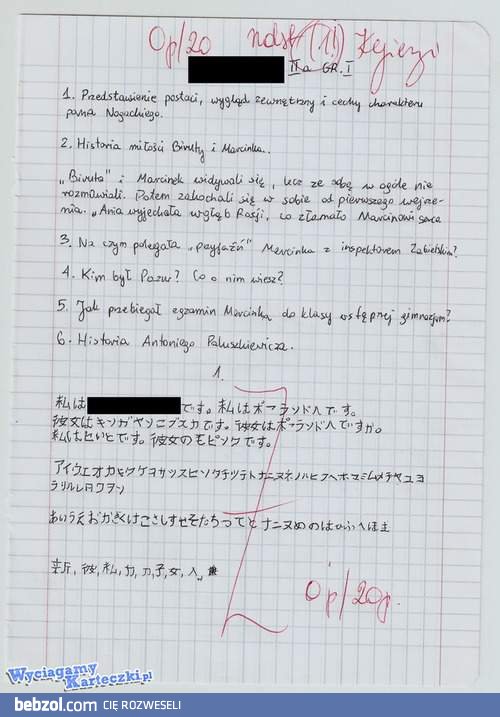 0p/20 ndst (1!)
IIa GR. I
1. Przedstawienie postaci, wygląd zewnętrzny i cechy charakteru
pana Nogackiego.
2. Historia miłości Biruty i Marcinka..
„Biruta" i Marcinek widywali się, lecz ze sobą w ogóle nie
rozmawiali. Potem zakochali się w sobie od pierwszego wejrze-
nia. „Ania wyjechała w głąb Rosji, co złamało Marcinowi serce
3. Na czym polegała „przyjaźń" Marcinka z inspektorem Zabielskim?
4. Kim był Pazur? Co o nim wiesz?
5. Jak przebiegał egzamin Marcinka do klasy wstępnej gimnazjum?
6. Historia Antoniego Paluszkiewicza.
1.
私は です。私はポーランドヘです。
彼女はキンガヤンニブスカです。彼女はポーランドヘですか。
私はせいとです。彼女のもピンクです。
アイウエオカキクケコサシスセソタチツテトナニヌネノハヒフヘホマミムメテヤユヨ
ラリルレロワヲン
あいうえおかきくけこさしすせそたちつてとナニヌめのはひふへほま
新, 彼, 私, 力, 刀, 子, 女, 人,
0p/20p.
Wyciagamy
Karteczki.pl
bebzol.com CIĘ ROZWESELI